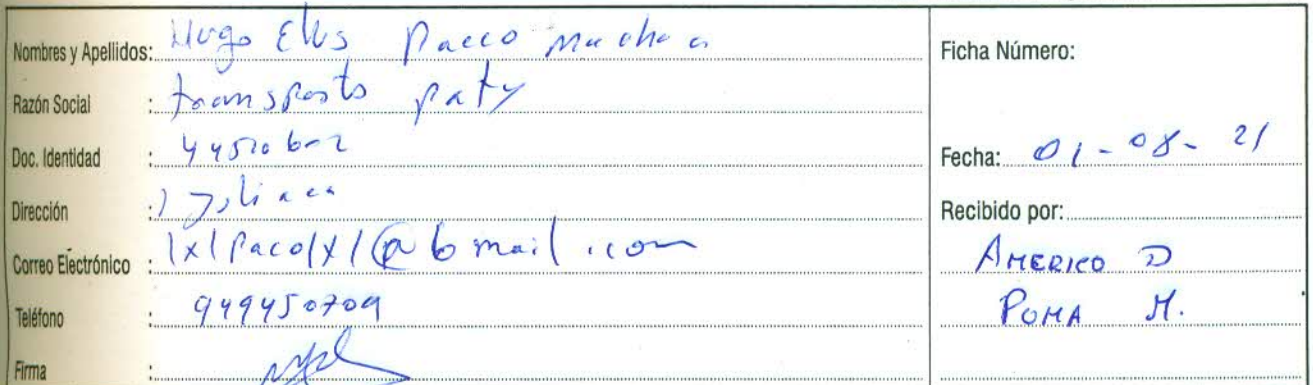 Nombres y Apellidos: Hugo Elvs Pacco Machaca
Razón Social : transporto paty
Doc. Identidad :
Dirección : Juliaca
Correo Electrónico : 1x1Paco1x1@6mail.com
Teléfono : 949450709
Firma :
Ficha Número:
Fecha: 01-08-21
Recibido por:
AMERICO D
POMA M.